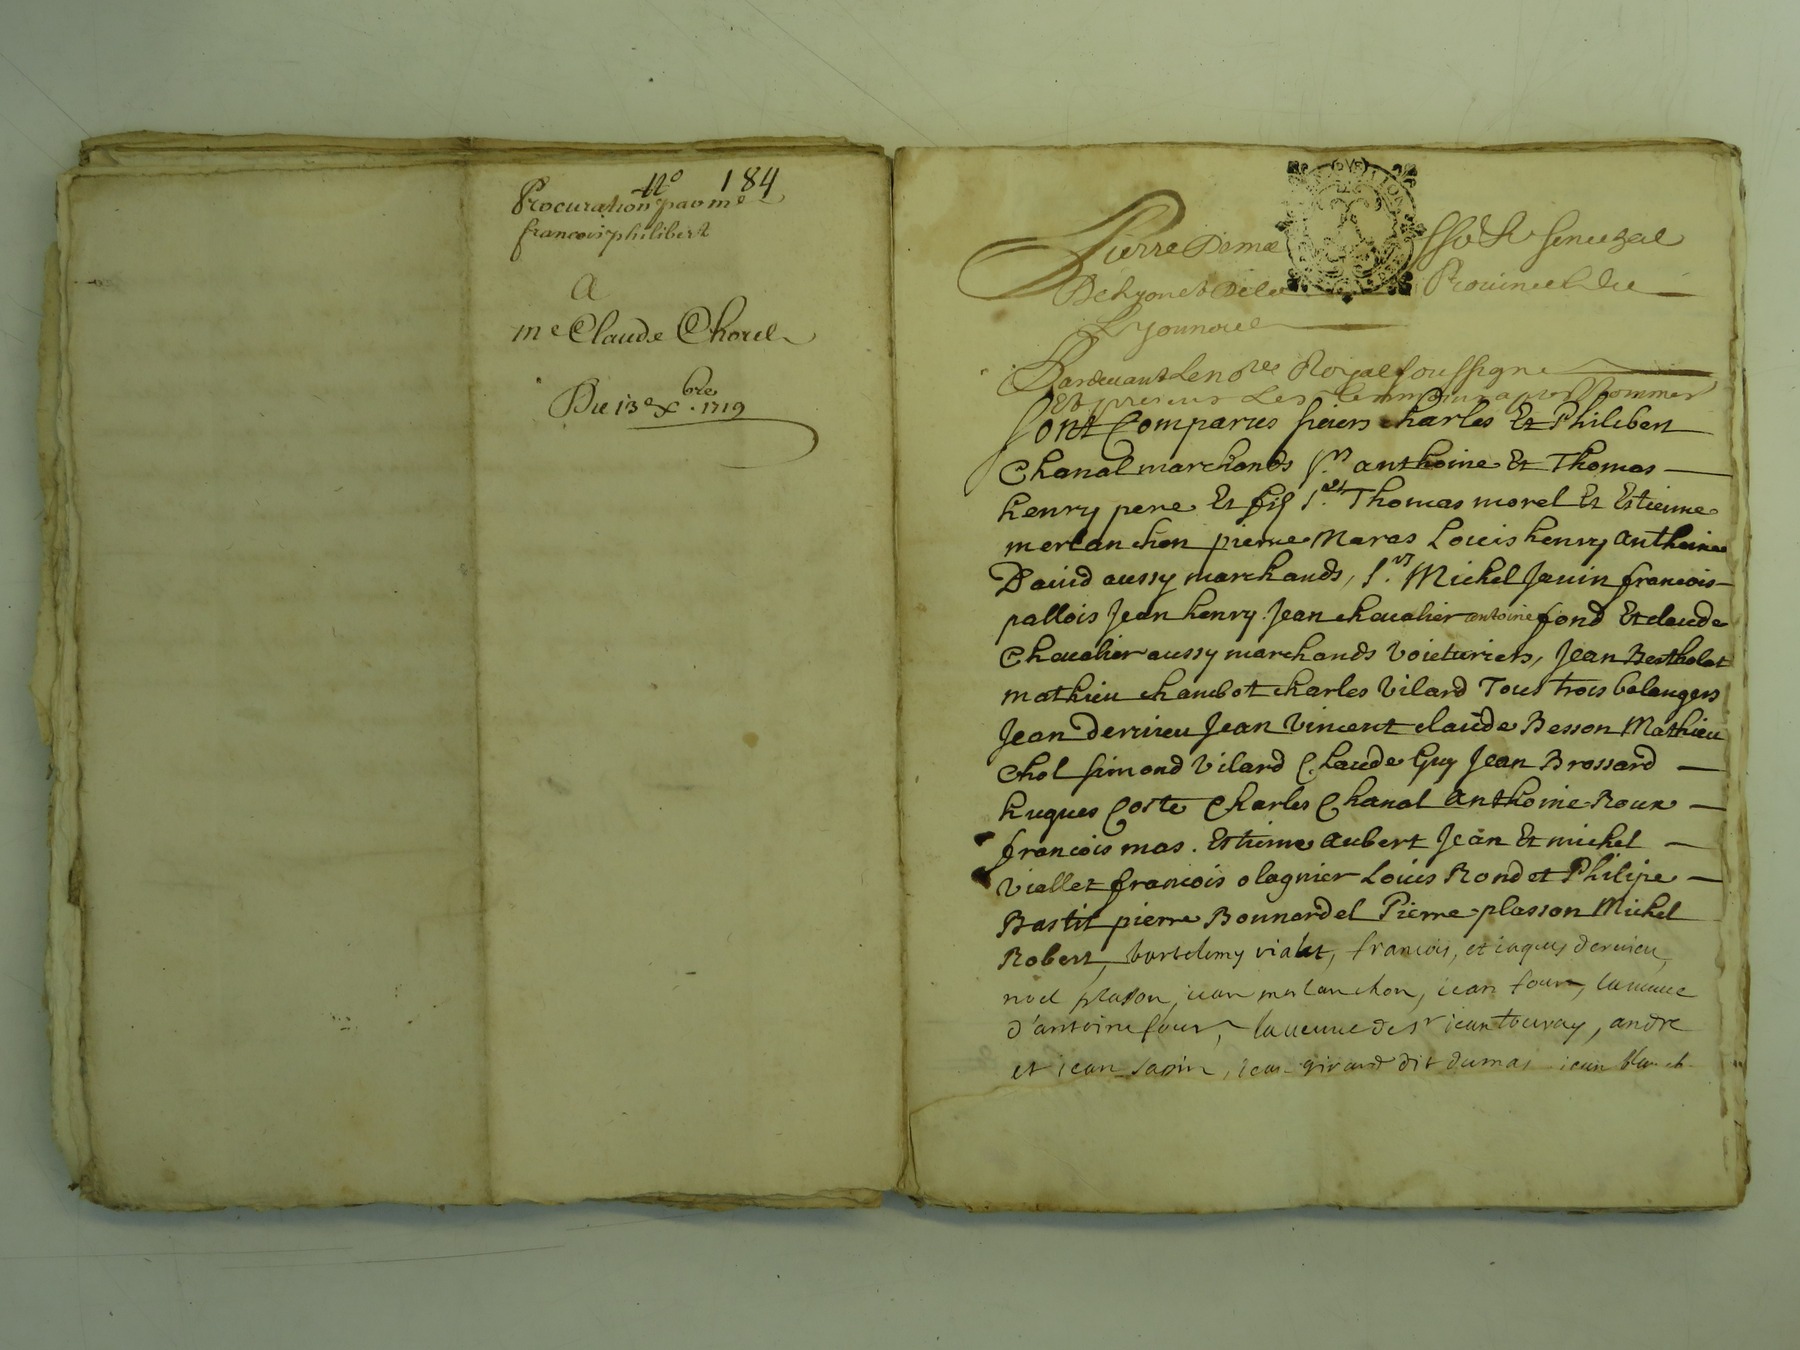 N° 184
Procuration par me
francois philibert
a
me Claude Chorel
Du 13e xbre 1719
Pierre Dema sso Sr Senezal
De Lyon et De la Prouince De
Lyonnois
Pardeuant Le nore Royal soussigne
Et presens Les temoins apres Nommes
sont Comparus sieurs charles Et Philibert
Chanal marchands srs anthoine Et Thomas
henry pere Et fils srs Thomas morel Et Estienne
merlanchon pierre Maras Louis henry anthoine
Dauid aussy marchands, srs Michel Januin francois
pallois Jean henry Jean cheualier antoine fond Et claude
Cheualier aussy marchands Voicturiers, Jean Bertholat
mathieu chambot charles Vilard Tous trois bolangers
Jean Dervieu Jean Vincent claude Besson Mathieu
Chol simond Vilard Claude Guy Jean Brossard
hugues Coste Charles Chanal Anthoine Roux
francois mas. Estienne Aubert Jean Et michel
Viallet francois olagnier Louis Rondet Philipe
Bastit pierre Bonnardel Pierre plasson Michel
Robert, bartelemy vialet, francois, et iaques dervieu,
noel plasson, jean merlanchon, iean four, la veuue
d'antoine four, la ueuue de sr iean touray, andre
et iean sapin, iean girard dit dumas iean